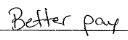 Better pay